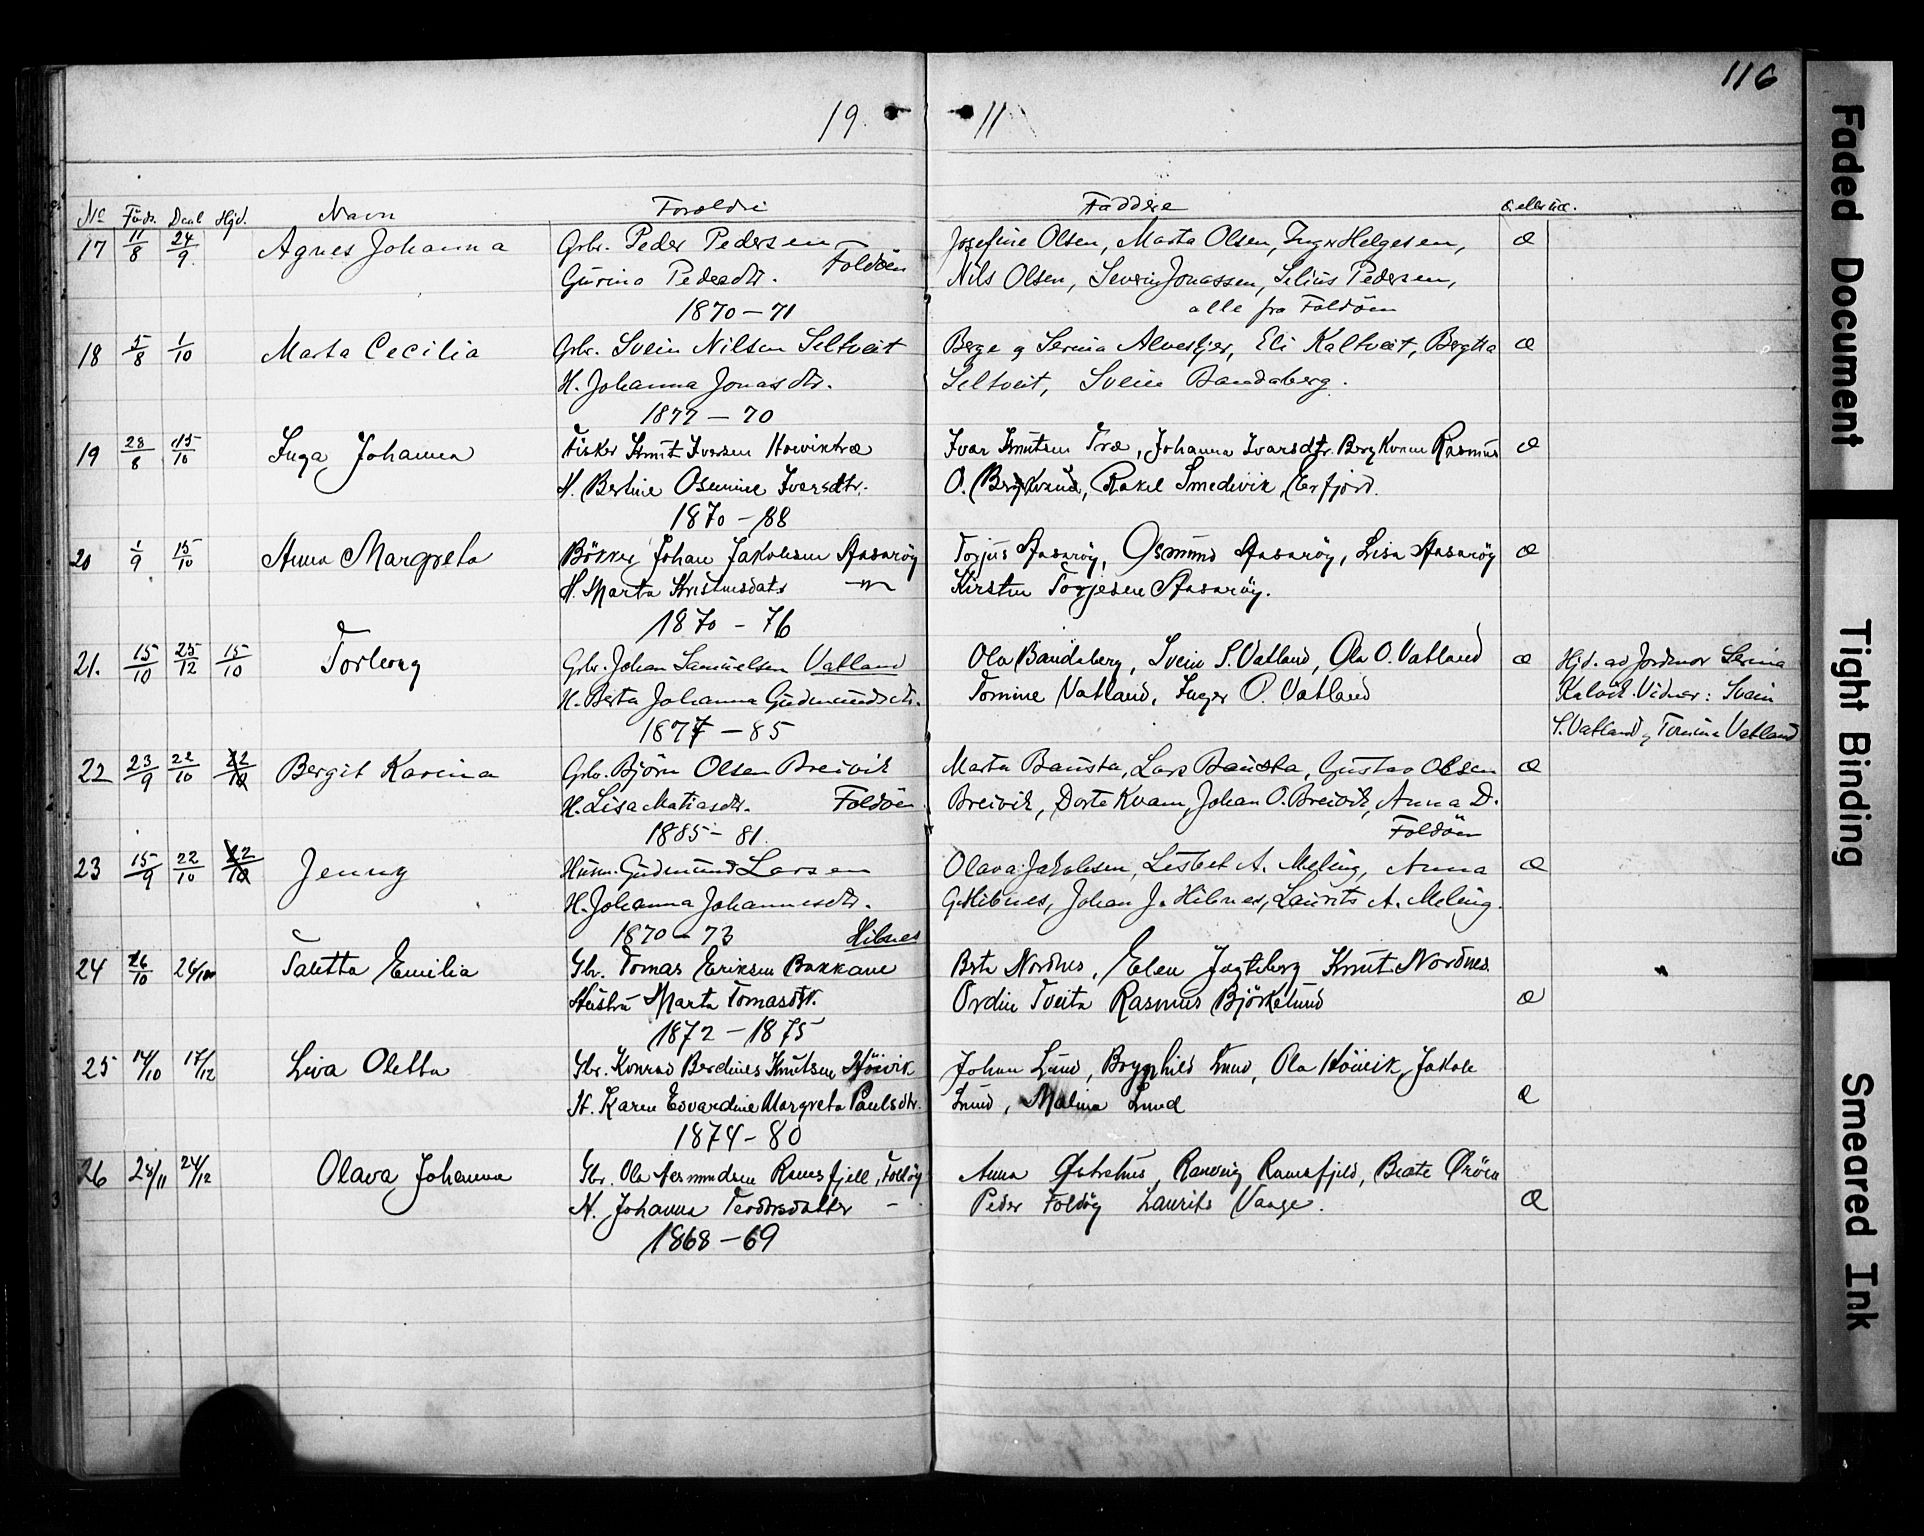 116
19 11
No Föds. Daab Hjd. Navn Forældre Faddere æ. eller uæ.
17 11/8 24/9 Agnes Johanna Grbr. Peder Pedersen Josefine Olsen, Marta Olsen, Inger Helgesen, æ
Gurina Pedersdtr. Foldöen Nils Olsen, Severin Jonassen, Selius Pedersen,
1870-71 alle fra Foldöen
18 5/8 1/10 Marta Cecilia Grbr. Svein Nilsen Seltveit Berge og Serina Eli Kaltveit, Seltveit, Svein Bandaberg. æ
H. Johanna Jonasdtr.
1877-70
19 28/8 15/10 Inga Johanna Fisker Knut Iversen Ivar Knutsen Træ, Johanna Ivarsdtr. Rasmus æ
H. Bertine Osmine Iversdtr. O. Rakel Smedvik, Erfjord.
1870-88
20 1/9 15/10 Anna Margreta Johan Jakobsen Torjus Osmund Lisa æ
H. Marta Kirsten Torjesen
1870-76
21. 15/10 25/12 15/10 Torborg Grbr. Johan Samuelsen Vatland Ola Bandaberg, Svein S. Vatland, Ola O. Vatland æ Hjd. av Jordmor Serina
H. Berta Johanna Gudmundsdtr. Tomine Vatland, Inger O. Vatland Kalvik. Vidner: Svein
1877-85 S. Vatland og Tomine Vatland
22 23/9 22/10 22/10 Bergit Karina Grbr. Björn Olsen Breivik Marta Bausta, Lars Bausta, Gustav Olsen æ
H. Lisa Matiasdtr. Foldöen Breivik, Dorte Kvam, Johan O. Breivik, Anna D.
1885-81. Foldöen
23 15/9 22/10 22/10 Jenny Husm. Gudmund Larsen Olava Jakobsen, Lisbet A. Meling, Anna æ
H. Johanna Johannesdtr. G. Hibnes, Johan J. Hibnes, Laurits A. Meling.
1870-73 Hibnes
24 26/10 Taletta Emilia Gbr. Tomas Eriksen Bakkane Nordnes, Elen Jagteberg Knut Nordnes.
Hustru Marta Tomasdtr. Ordin Tveita Rasmus Björkelund æ
1872-1875
25 14/10 17/12 Liva Oletta Gbr. Konrad Berdines Knutsen Höivik Johan Lund, Lund, Ola Höivik, Jakob
H. Karen Edvardine Margreta Paulsdtr. Lund, Malina Lund æ
1874-80
26 28/11 24/12 Olava Johanna Gbr. Ola Foldöy Anna Beate
H. Johanna Teodorsdatter - Peder Foldöy Laurits Vaage. æ
1868-69
Faded Document
Tight Binding
Smeared Ink